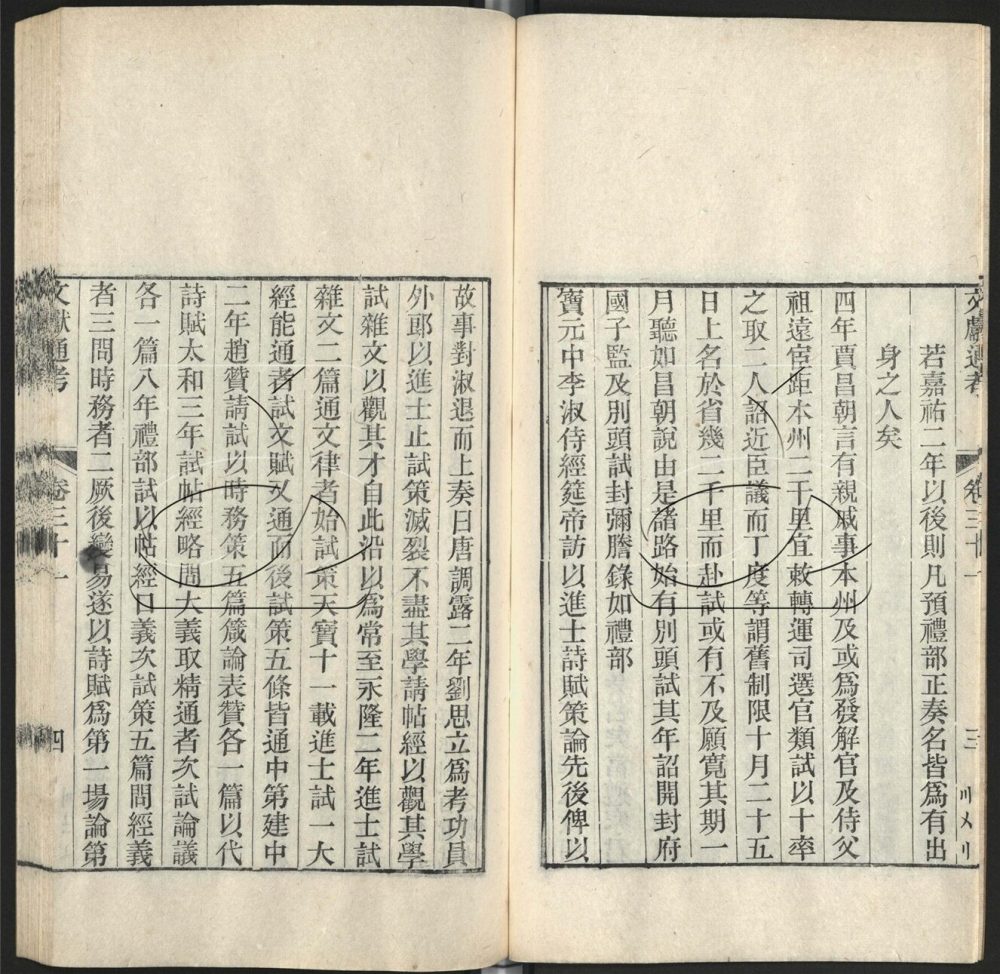 文獻通考 卷三十一 三
若嘉祐二年以後則凡預禮部正奏名皆爲有出
身之人矣
四年賈昌朝言有親戚事本州及或爲發解官及侍父
祖遠宦距本州二千里宜敕轉運司選官類試以十率
之取二人詔近臣議而丁度等謂舊制限十月二十五
日上名於省幾二千里而赴試或有不及願寬其期一
月聽如昌朝說由是諸路始有別頭試其年詔開封府
國子監及別頭試封彌謄錄如禮部
寶元中李淑侍經筵帝訪以進士詩賦策論先後俾以
故事對淑退而上奏曰唐調露二年劉思立爲考功員
外郎以進士止試策滅裂不盡其學請帖經以觀其學
試雜文以觀其才自此沿以爲常至永隆二年進士試
雜文二篇通文律者始試策天寶十一載進士試一大
經能通者試文賦又通而後試策五條皆通中第建中
二年趙贊請試以時務策五篇箴論表贊各一篇以代
詩賦太和三年試帖經略問大義取精通者次試論議
各一篇八年禮部試以帖經口義次試策五篇問經義
者三問時務者二厥後變易遂以詩賦爲第一場論第
文獻通考 卷三十一 四